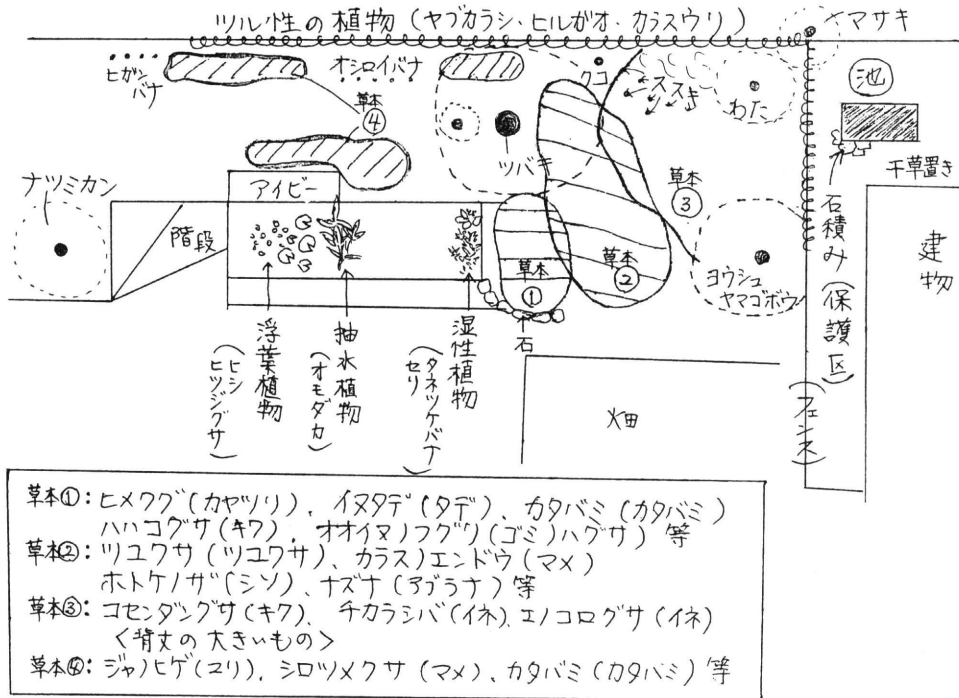 ツル性の植物(ヤブカラシ・ヒルガオ・カラスウリ)
マサキ
ヒガンバナ
オシロイバナ
クコ
ススキ
わた
池
草本④
ツバキ
干草置き
ナツミカン
アイビー
草本③
階段
石積み(保護区)
建物
草本①
草本②
ヨウシュヤマゴボウ
石
浮葉植物
(ヒシ
ヒツジグサ)
抽水植物
(オモダカ)
湿性植物
(タネツケバナ
セリ)
畑
(フェンス)
草本①:ヒメクグ(カヤツリ)、イヌタデ(タデ)、カタバミ(カタバミ)
ハハコグサ(キク)、オオイヌノフグリ(ゴミノハグサ)等
草本②:ツユクサ(ツユクサ)、カラスノエンドウ(マメ)
ホトケノザ(シソ)、ナズナ(アブラナ)等
草本③:コセンダングサ(キク)、チカラシバ(イネ)、エノコログサ(イネ)
<背丈の大きいもの>
草本④:ジャノヒゲ(ユリ)、シロツメクサ(マメ)、カタバミ(カタバミ)等